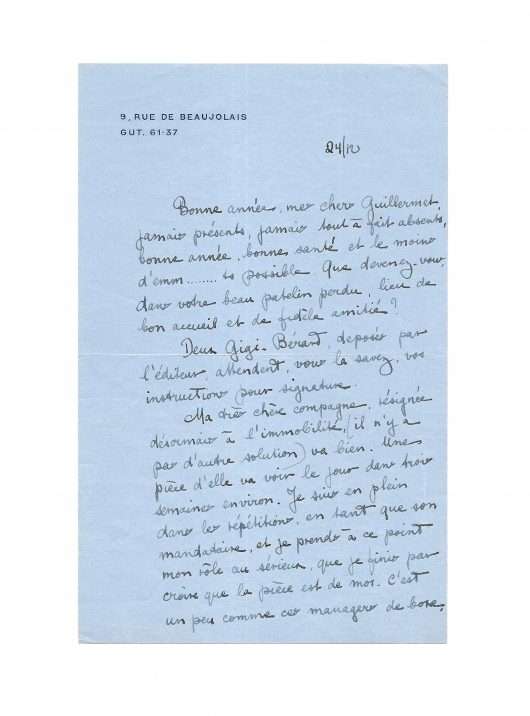 9, RUE DE BEAUJOLAIS
GUT. 61-37
24/12
Bonne année, mes chers Guillermet,
jamais présents, jamais tout à fait absents,
bonne année, bonnes santé et le moins
d'emm........ts possible. Que devenez-vous
dans votre beau patelin perdu, lieu de
bon accueil et de fidèle amitié ?
Deux Gigi-Bérard, déposés par
l'éditeur, attendent, vous le savez, vos
instructions pour signature.
Ma très chère compagne, résignée
désormais à l'immobilité, (il n'y a
pas d'autre solution) va bien. Une
pièce d'elle va voir le jour dans trois
semaines environ. Je suis en plein
dans les répétitions, en tant que son
mandataire, et je prends à ce point
mon rôle au sérieux, que je finis par
croire que la pièce est de moi. C'est
un peu comme ces managers de boxe,